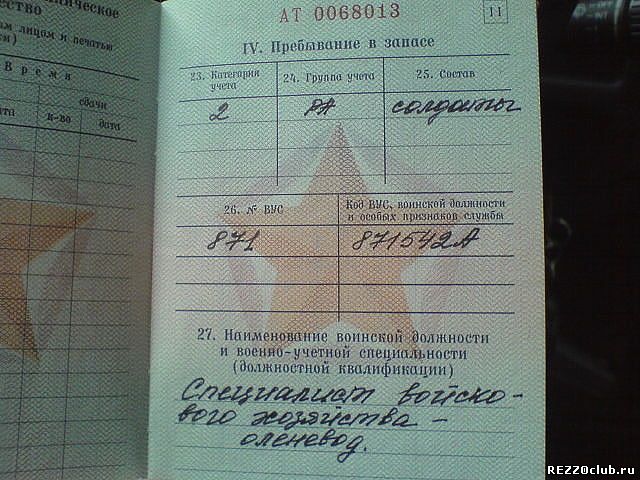 ическое
ество
ым лицом и печатью
Время
сдачи
та
к-во
дата
АТ 0068013
11
IV. Пребывание в запасе
23. Категория учета
24. Группа учета
25. Состав
2
РА
солдаты
26. № ВУС
Код ВУС, воинской должности и особых признаков службы
871
871542А
27. Наименование воинской должности
и военно-учетной специальности
(должностной квалификации)
Специалист войско-
вого хозяйства -
оленевод.
REZZOclub.ru